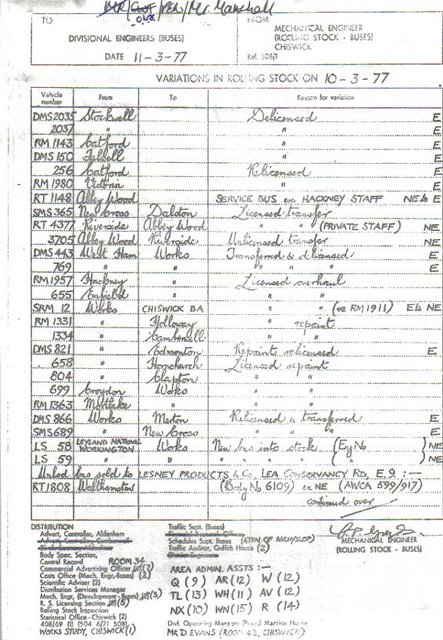 Mr. Marshall
TO
FROM
DIVISIONAL ENGINEERS (BUSES)
MECHANICAL ENGINEER
(ROLLING STOCK - BUSES)
CHISWICK
DATE 11-3-77
Ref. 508/1
VARIATIONS IN ROLLING STOCK ON 10-3-77
Vehicle number From To Reason for variation
DMS 2035 Stockwell Delicensed E
2037 " " E
RM 1143 Catford " E
DMS 150 Fulwell " E
256 Catford Relicensed E
RM 1980 Victoria " E
RT 1148 Abbey Wood SERVICE BUS ex HACKNEY STAFF NE to E
SMS 365 New Cross Dalston Licensed transfer
RT 4377 Riverside Abbey Wood " " (PRIVATE STAFF) NE
3705 Abbey Wood Riverside Unlicensed transfer NE
DMS 443 West Ham Works Transferred & delicensed E
769 " " " " E
RM 1957 Hackney " Licensed overhaul
655 Enfield " " "
SRM 12 Works CHISWICK BA " " (ex RM 1911) E to NE
RM 1331 " Holloway " repaint
1334 " Camberwell " "
DMS 821 " Edmonton Repaint relicensed E
658 " Hornchurch Licensed repaint
804 " Clapton " "
699 Croydon Works " "
RM 1363 Mortlake " " "
DMS 866 Works Merton Relicensed & transferred E
SMS 689 " New Cross " " E
LS 58 LEYLAND NATIONAL WORKINGTON Works New bus into stock (Eng No ) NE
LS 59 " " " " NE
Unlicd bus sold to LESNEY PRODUCTS & Co. LEA CONSERVANCY RD, E.9 :-
RT 1808 Walthamstow (Body No 6109) ex NE (AWCA 599/917)
continued over
DISTRIBUTION
Advert. Controller, Aldenham
Body Spec. Section,
Central Record ROOM 34
Commercial Advertising Officer
Costs Office (Mech. Engr. Buses) (2)
Scientific Adviser (2)
Distribution Services Manager
(Mech. Engr. Buses) (3)
R. S. Licensing Section
Rolling Stock Inspection
Statistical Office - Chiswick (2)
WORKS STUDY, CHISWICK (1)
Traffic Supt. (Buses)
Schedules Supt. Buses
Traffic Auditor, Griffith House (2)
AREA ADMIN. ASSTS :-
Q (9) AR (12) W (12)
TL (13) WH (11) AV (12)
NX (10) WN (15) R (14)
MR D EVANS (ROOM 42, CHISWICK)
MECHANICAL ENGINEER
(ROLLING STOCK - BUSES)